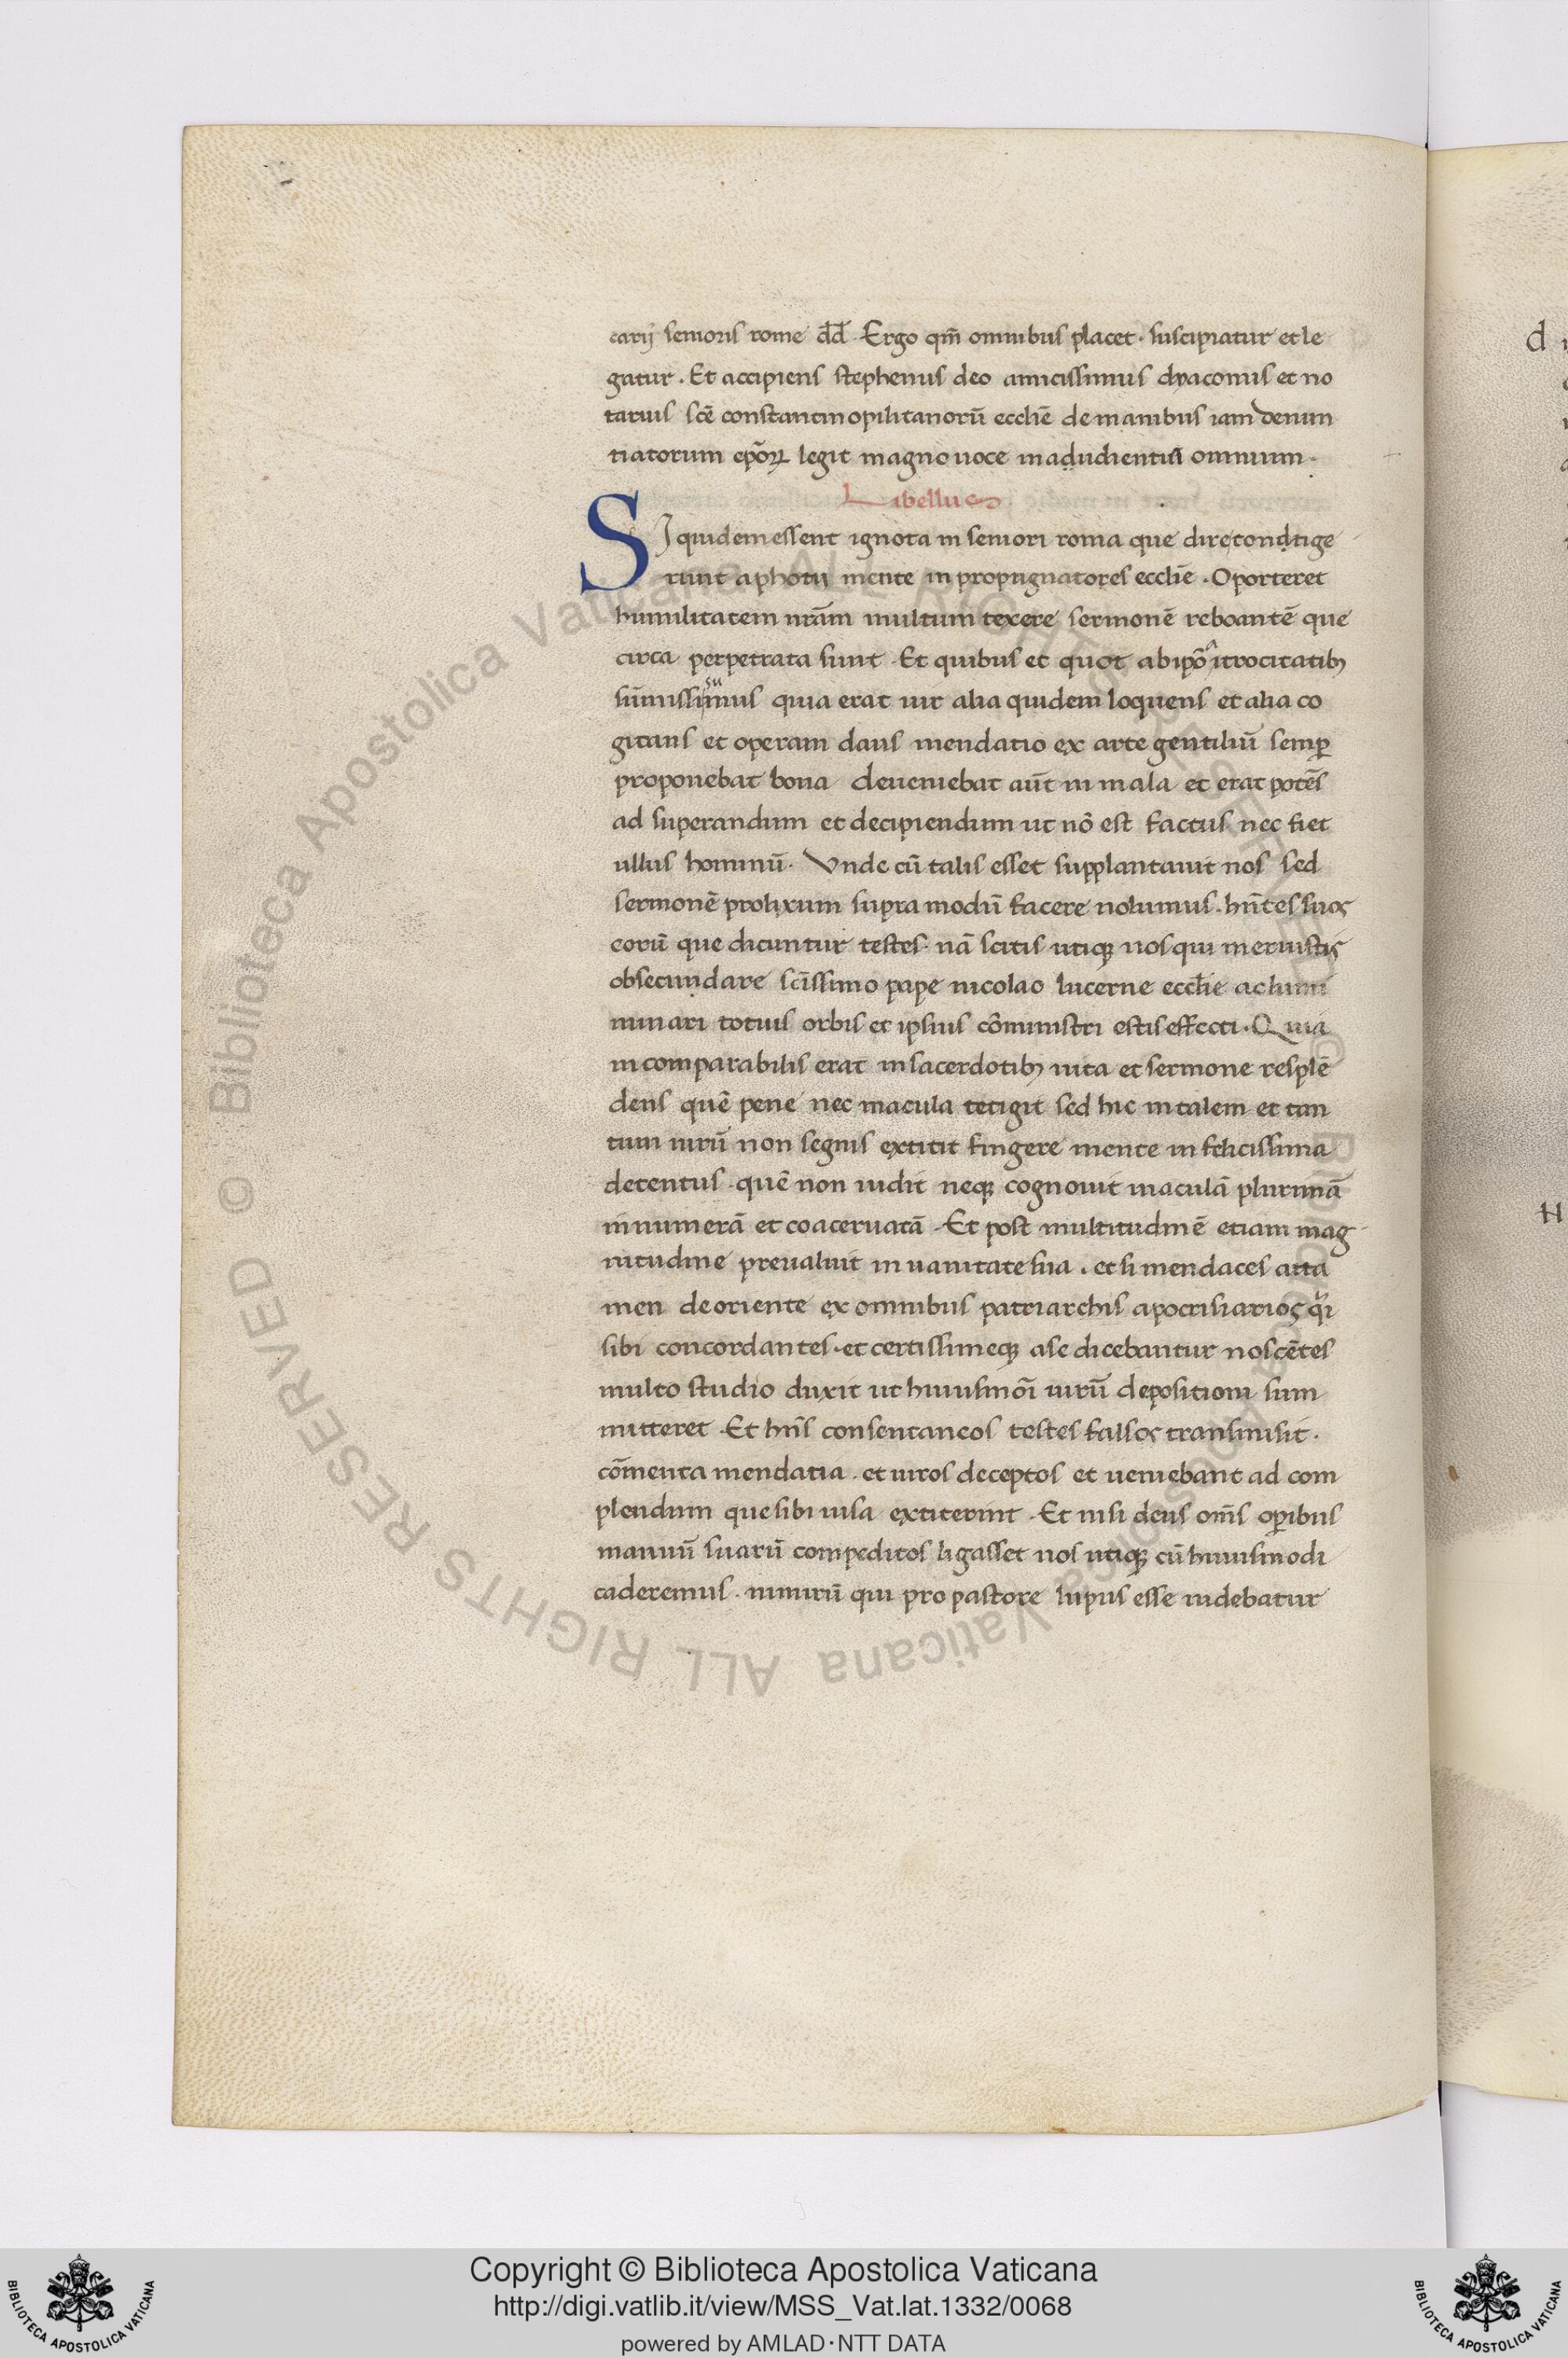 carij senioris rome dd̄. Ergo qm̄ omnibus placet. suscipiatur et le
gatur. Et accipiens stephenus deo amicissimus dyaconus et no
tarius scē constantinopilitanorū eccliē de manibus iam denun
tiatorum epōꝝ legit magno uoce in adudientia omnium.
Libellus
SI quidem essent ignota in seniori roma que dire contige
runt a photij mente in propugnatores eccliē. Oporteret
humilitatem nrām multum texere sermonē reboantē que
circa perpetrata sunt. Et quibus et quot ab ipō atrocitatibꝫ
sūmissimus quia erat uir alia quidem loquens et alia co
gitans et operam dans mendatio ex arte gentiliū semꝑ
proponebat bona deueniebat aūt in mala et erat potēs
ad superandum et decipiendum ut nō est factus nec fiet
ullus hominū. Vnde cū talis esset supplantauit nos sed
sermonē prolixum supra modū facere nolumus. hn̄tes suos
eorū que dicuntur testes. nā scitis utiqꝫ uos qui meruistis
obsecundare scīssimo pape nicolao lucerne eccliē ac lumi
minari totius orbis et ipsius cōministri estis effecti. Quia
incomparabilis erat in sacerdotibꝫ uita et sermone resplē
dens quē pene nec macula tetigit sed hic in talem et tan
tum uirū non segnis extitit fingere mente infelicissima
detentus. quē non uidit neqꝫ cognouit maculā plurimā
innumerā et coaceruatā. Et post multitudinē etiam mag
nitudine preualuit in uanitate sua. et si mendaces atta
men de oriente ex omnibus patriarchis apocrisiarios qͥi
sibi concordantes. et certissimeqꝫ a se dicebantur noscētes
multo studio duxit ut huiusmōi uirū depositioni sum
mitteret. Et hn̄s consentaneos testes falsos transmisit.
cōmenta mendatia. et uiros deceptos et ueniebant ad com
plendum que sibi uisa extiterint. Et nisi deus om̄s oꝑibus
manuū suarū compeditos ligasset nos utiqꝫ cū huiusmodi
caderemus. nimirū qui pro pastore lupus esse uidebatur
© Biblioteca Apostolica Vaticana ALL RIGHTS RESERVED © Biblioteca Apostolica Vaticana ALL RIGHTS RESERVED
Copyright © Biblioteca Apostolica Vaticana
http://digi.vatlib.it/view/MSS_Vat.lat.1332/0068
powered by AMLAD·NTT DATA
BIBLIOTECA APOSTOLICA VATICANA
BIBLIOTECA APOSTOLICA VATICANA